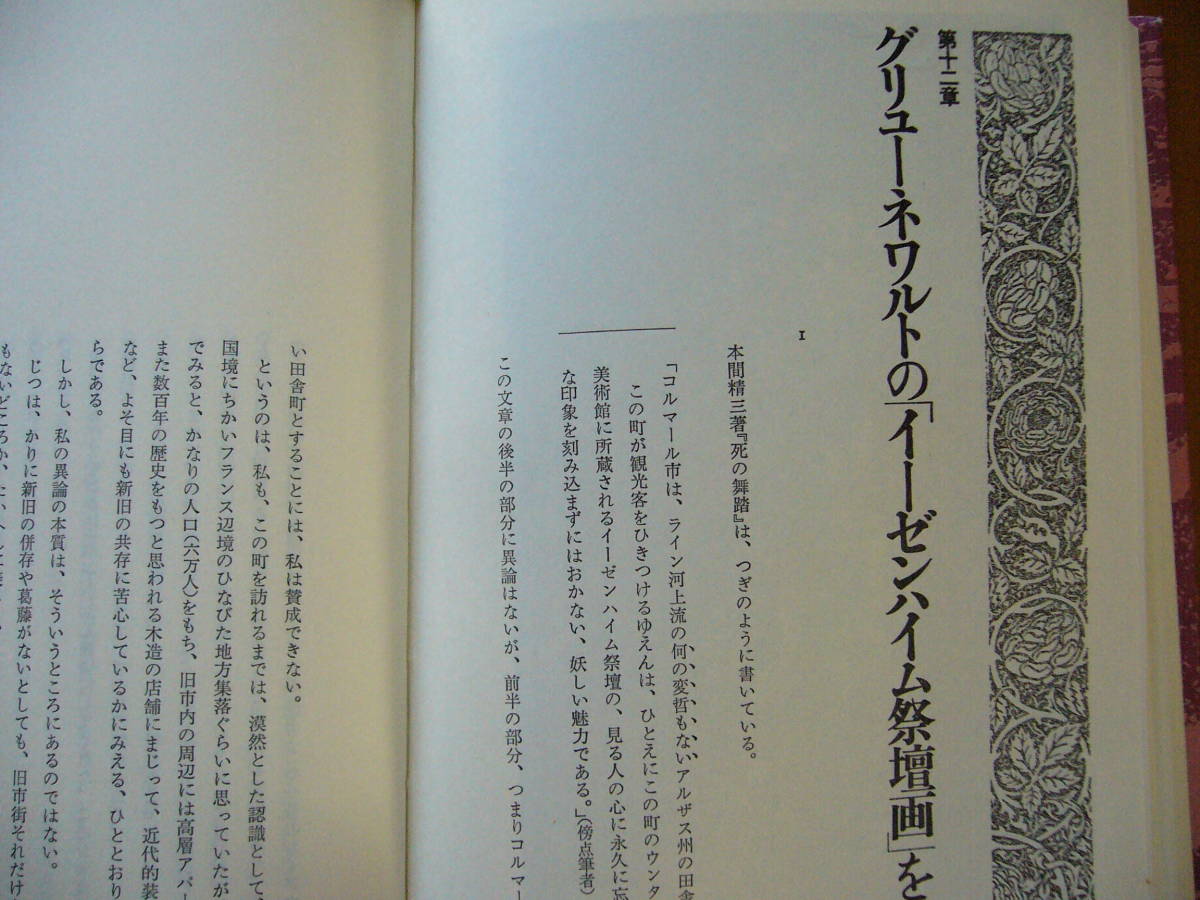 第十二章
グリューネワルトの「イーゼンハイム祭壇画」を
1
本間精三著『死の舞踏』は、つぎのように書いている。
「コルマール市は、ライン河上流の何の変哲もないアルザス州の田舎
この町が観光客をひきつけるゆえんは、ひとえにこの町のウンタ
美術館に所蔵されるイーゼンハイム祭壇の、見る人の心に永久に忘
な印象を刻み込まずにはおかない、妖しい魅力である。」(傍点筆者)
この文章の後半の部分に異論はないが、前半の部分、つまりコルマー
い田舎町とすることには、私は賛成できない。
というのは、私も、この町を訪れるまでは、漠然とした認識として、
国境にちかいフランス辺境のひなびた地方集落ぐらいに思っていたが
でみると、かなりの人口(六万人)をもち、旧市内の周辺には高層アパー
また数百年の歴史をもつと思われる木造の店舗にまじって、近代的装
など、よそ目にも新旧の共存に苦心しているかにみえる、ひととおり
らである。
しかし、私の異論の本質は、そういうところにあるのではない。
じつは、かりに新旧の併存や葛藤がないとしても、旧市街それだけ
もないどころか、たいへんに